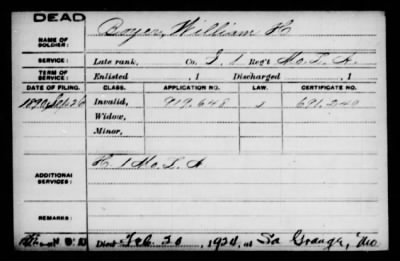 DEAD
NAME OF SOLDIER: Boyer, William H
SERVICE: Late rank, Co. I, 1 Reg't Mo. L. A.
TERM OF SERVICE: Enlisted , 1 Discharged , 1
DATE OF FILING. CLASS. APPLICATION NO. LAW. CERTIFICATE NO.
1890 Sep 26 Invalid, 919.648 691.240
Widow,
Minor,
ADDITIONAL SERVICES: H 1 Mo. L. A.
REMARKS:
Died Feb. 20, 1924, at La Grange, Mo